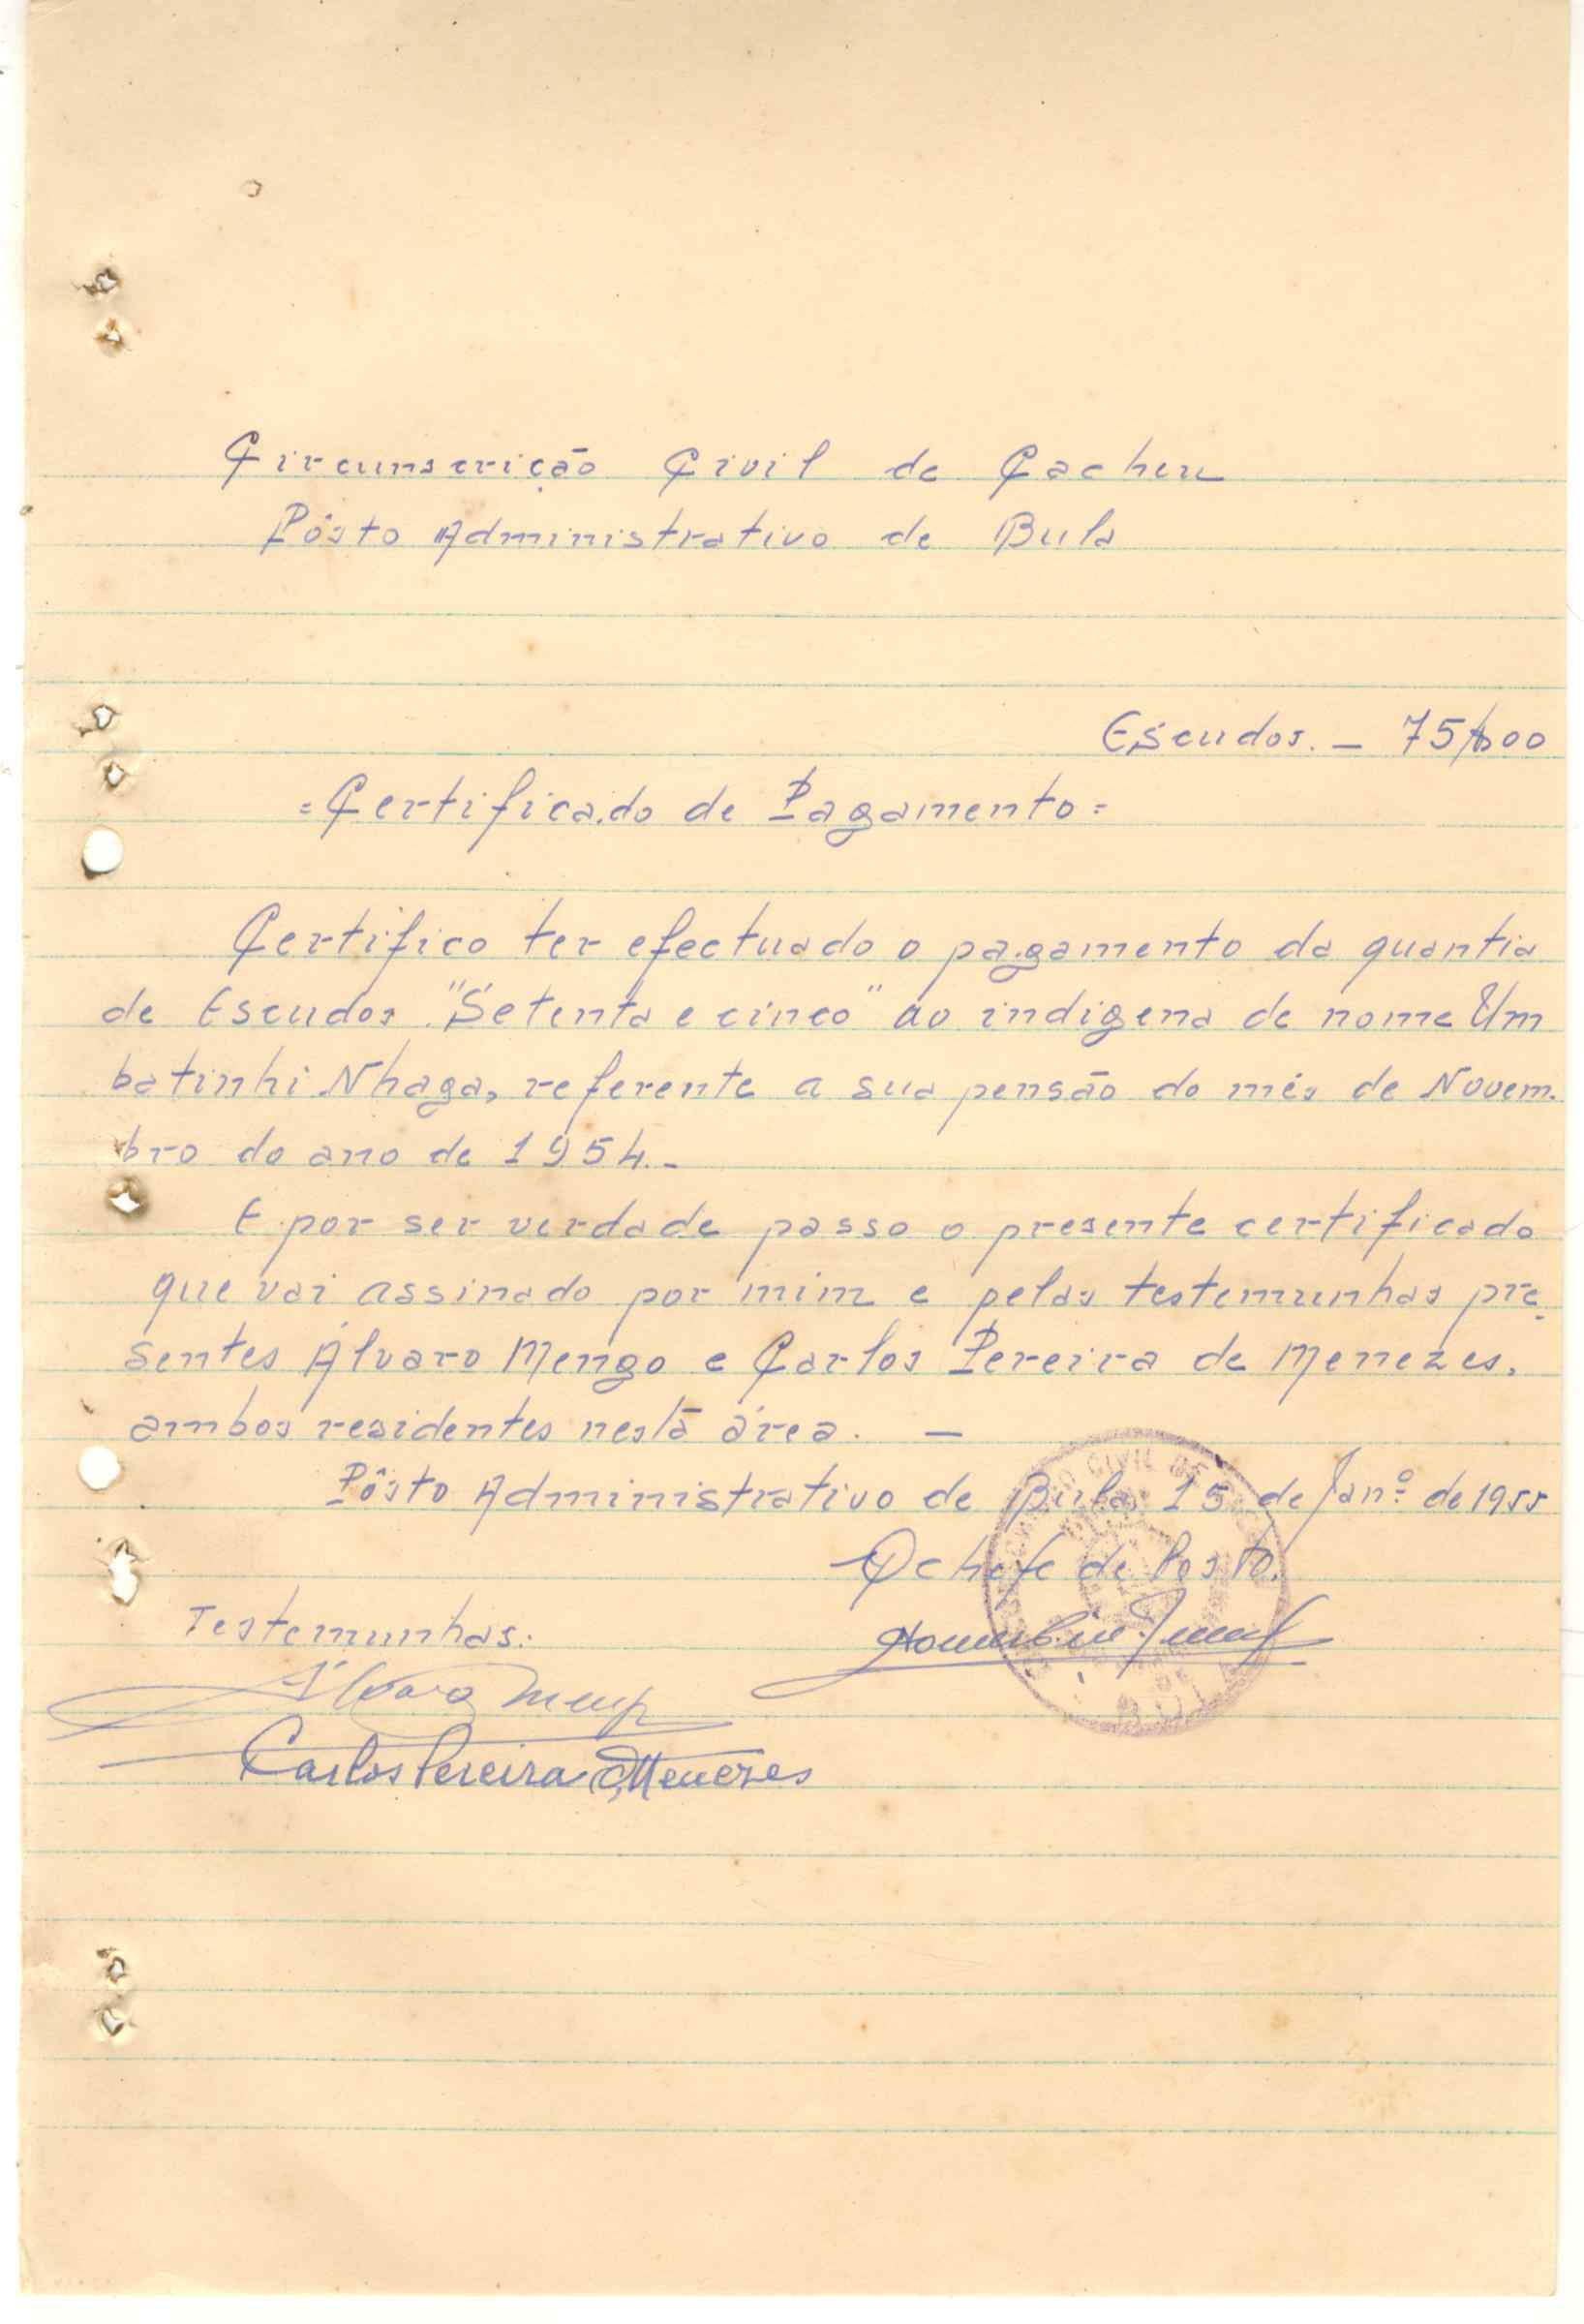 Circunscrição Civil de Cacheu
Pôsto Administrativo de Bula
Escudos. — 75$00
=Certificado de Pagamento=
Certifico ter efectuado o pagamento da quantia
de Escudos "Setenta e cinco" ao indigena de nome Um
batinhi Nhaga, referente a sua pensão do mês de Novem.
bro do ano de 1954.-
E por ser verdade passo o presente certificado
que vai assinado por mim e pelas testemunhas pre-
sentes Álvaro Mengo e Carlos Pereira de Menezes,
ambos residentes nesta área. —
Pôsto Administrativo de Bula, 15 de Janº de 1955
O chefe de Posto.
Testemunhas:
Álvaro Mengo
Carlos Pereira de Menezes
CIVIL DE